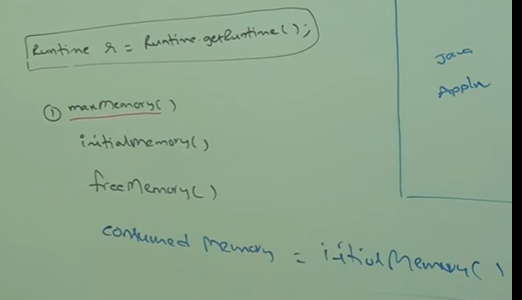 Runtime r = Runtime.getRuntime();
① maxMemory()
initialmemory()
freeMemory()
consumed Memory = initialMemory()
Java
Appln